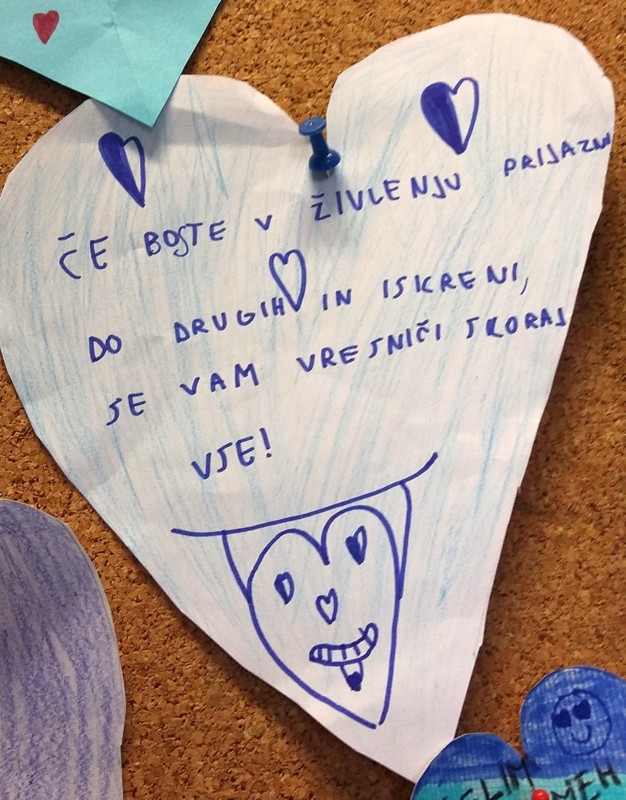 ČE BOSTE V ŽIVLENJU PRIJAZNI
DO DRUGIH IN ISKRENI,
SE VAM VRESNIČI SKORAJ
VSE!